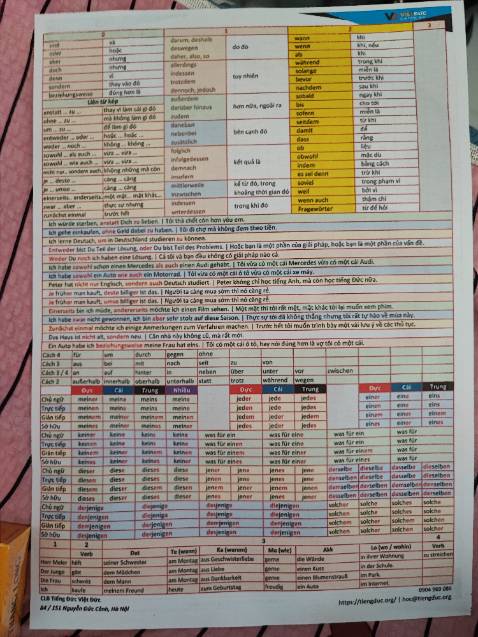 VIỆT ĐỨC
0 1 2 3
und và darum, deshalb do đó wann khi
oder hoặc deswegen wenn khi, nếu
aber nhưng daher, also, so als khi
doch nhưng allerdings tuy nhiên während trong khi
denn vì indessen solange miễn là
sondern thay vào đó trotzdem bevor trước khi
beziehungsweise đúng hơn là dennoch, jedoch nachdem sau khi
Liên từ kép außerdem hơn nữa, ngoài ra sobald ngay khi
anstatt ... zu thay vì làm cái gì đó darüber hinaus bis cho tới
ohne ... zu mà không làm gì đó zudem sofern miễn là
um ... zu để làm gì đó daneben bên cạnh đó seitdem từ khi
entweder ... oder hoặc ... hoặc ... nebenbei damit để
weder ... noch không ... không ... zusätzlich dass rằng
sowohl ... als auch vừa ... vừa ... folglich kết quả là ob liệu
sowohl ... wie auch vừa ... vừa ... infolgedessen obwohl mặc dù
nicht nur.. sondern auch không những mà còn demnach indem bằng cách
je ... desto càng ... càng insofern es sei denn trừ khi
je ... umso ... càng ... càng mittlerweile kể từ đó, trong khoảng thời gian đó soviel trong phạm vi
einerseits.. andererseits một mặt... mặt khác... inzwischen weil bởi vì
zwar ... aber thực sự nhưng indessen trong khi đó wenn auch thậm chí
zunächst einmal trước hết unterdessen Fragewörter từ để hỏi
Ich würde sterben, anstatt Dich zu lieben. | Tôi thà chết còn hơn yêu em.
Ich gehe einkaufen, ohne Geld dabei zu haben. | Tôi đi chợ mà không đem theo tiền.
Ich lerne Deutsch, um in Deutschland studieren zu können.
Entweder bist Du Teil der Lösung, oder Du bist Teil des Problems. | Hoặc bạn là một phần của giải pháp, hoặc bạn là một phần của vấn đề.
Weder Du noch ich haben eine Lösung. | Cả tôi và bạn đều không có giải pháp nào cả.
Ich habe sowohl schon einen Mercedes als auch einen Audi gehabt. | Tôi vừa có một cái Mercedes vừa có một cái Audi.
Ich habe sowohl ein Auto wie auch ein Motorrad. | Tôi vừa có một cái ô tô vừa có một cái xe máy.
Peter hat nicht nur Englisch, sondern auch Deutsch studiert. | Peter không chỉ học tiếng Anh, mà còn học tiếng Đức nữa.
Je früher man kauft, desto billiger ist das. | Người ta càng mua sớm thì nó càng rẻ.
Je früher man kauft, umso billiger ist das. | Người ta càng mua sớm thì nó càng rẻ.
Einerseits bin ich müde, andererseits möchte ich einen Film sehen. | Một mặt thì tôi rất mệt, mặt khác tôi lại muốn xem phim.
Ich habe zwar nicht gewonnen, ich bin aber sehr stolz auf diese Saison. | Thực sự tôi đã không thắng nhưng tôi rất tự hào về mùa này.
Zunächst einmal möchte ich einige Anmerkungen zum Verfahren machen. | Trước hết tôi muốn trình bày một vài lưu ý về các thủ tục.
Das Haus ist nicht alt, sondern neu. | Căn nhà này không cũ, mà rất mới.
Ein Auto habe ich beziehungsweise meine Frau hat eins. | Tôi có một cái ô tô, hay nói đúng hơn là vợ tôi có một cái.
Cách 4 für um durch gegen ohne
Cách 3 aus bei mit nach seit zu von
Cách 3 / 4 an auf hinter in neben über unter vor zwischen
Cách 2 außerhalb innerhalb oberhalb unterhalb statt trotz während wegen
Đực Cái Trung Nhiều Đực Cái Trung Đực Cái Trung
Chủ ngữ meiner meine meines meine jeder jede jedes einer eine eins
Trực tiếp meinen meine meines meine jeden jede jedes einen eine eins
Gián tiếp meinem meiner meinem meinen jedem jeder jedem einem einer einem
Sở hữu meines meiner meines meiner
Chủ ngữ keiner keine keins keine was für ein was für eine was für ein was für
Trực tiếp keinen keine keins keine was für einen was für eine was für ein was für
Gián tiếp keinem keiner keinem keinen was für einem was für einer was für einem was für
Sở hữu keines keiner keines keiner was für eines was für einer was für eines
Chủ ngữ dieser diese dieses diese jener jene jenes jene derselbe dieselbe dasselbe dieselben
Trực tiếp diesen diese dieses diese jenen jene jenes jene denselben dieselbe dasselbe dieselben
Gián tiếp diesem dieser diesem diesen jenem jener jenem jenen demselben derselben demselben denselben
Sở hữu dieses dieser dieses dieser jenes jener jenes jener desselben derselben desselben derselben
Chủ ngữ derjenige diejenige dasjenige diejenigen solcher solche solches solche
Trực tiếp denjenigen diejenige dasjenige diejenigen solchen solche solches solche
Gián tiếp demjenigen derjenigen demjenigen denjenigen solchem solcher solchem solchen
Sở hữu desjenigen derjenigen desjenigen derjenigen
1 2 3 4
Verb Dat Te (wann) Ka (warum) Mo (wie) Akk Lo (wo / wohin) Verb
Herr Meier hilft seiner Schwester am Montag aus Geschwisterliebe gerne die Wände in ihrer Wohnung zu streichen
Der Junge gibt dem Mädchen am Montag aus Liebe gerne einen Kuss in der Schule.
Die Frau schenkt dem Mann am Montag aus Dankbarkeit gerne einen Blumenstrauß im Park.
Ich kaufe meinem Freund heute zum Geburtstag freudig ein Auto im Internet.
CLB Tiếng Đức Việt Đức 0904 960 081
64 / 151 Nguyễn Đức Cảnh, Hà Nội https://tiengduc.org/ | hoc@tiengduc.org